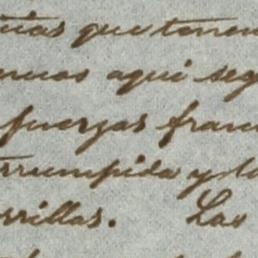 que tenem
aqui seg
fuerzas fran
rrumpida y la
rrillas. Las